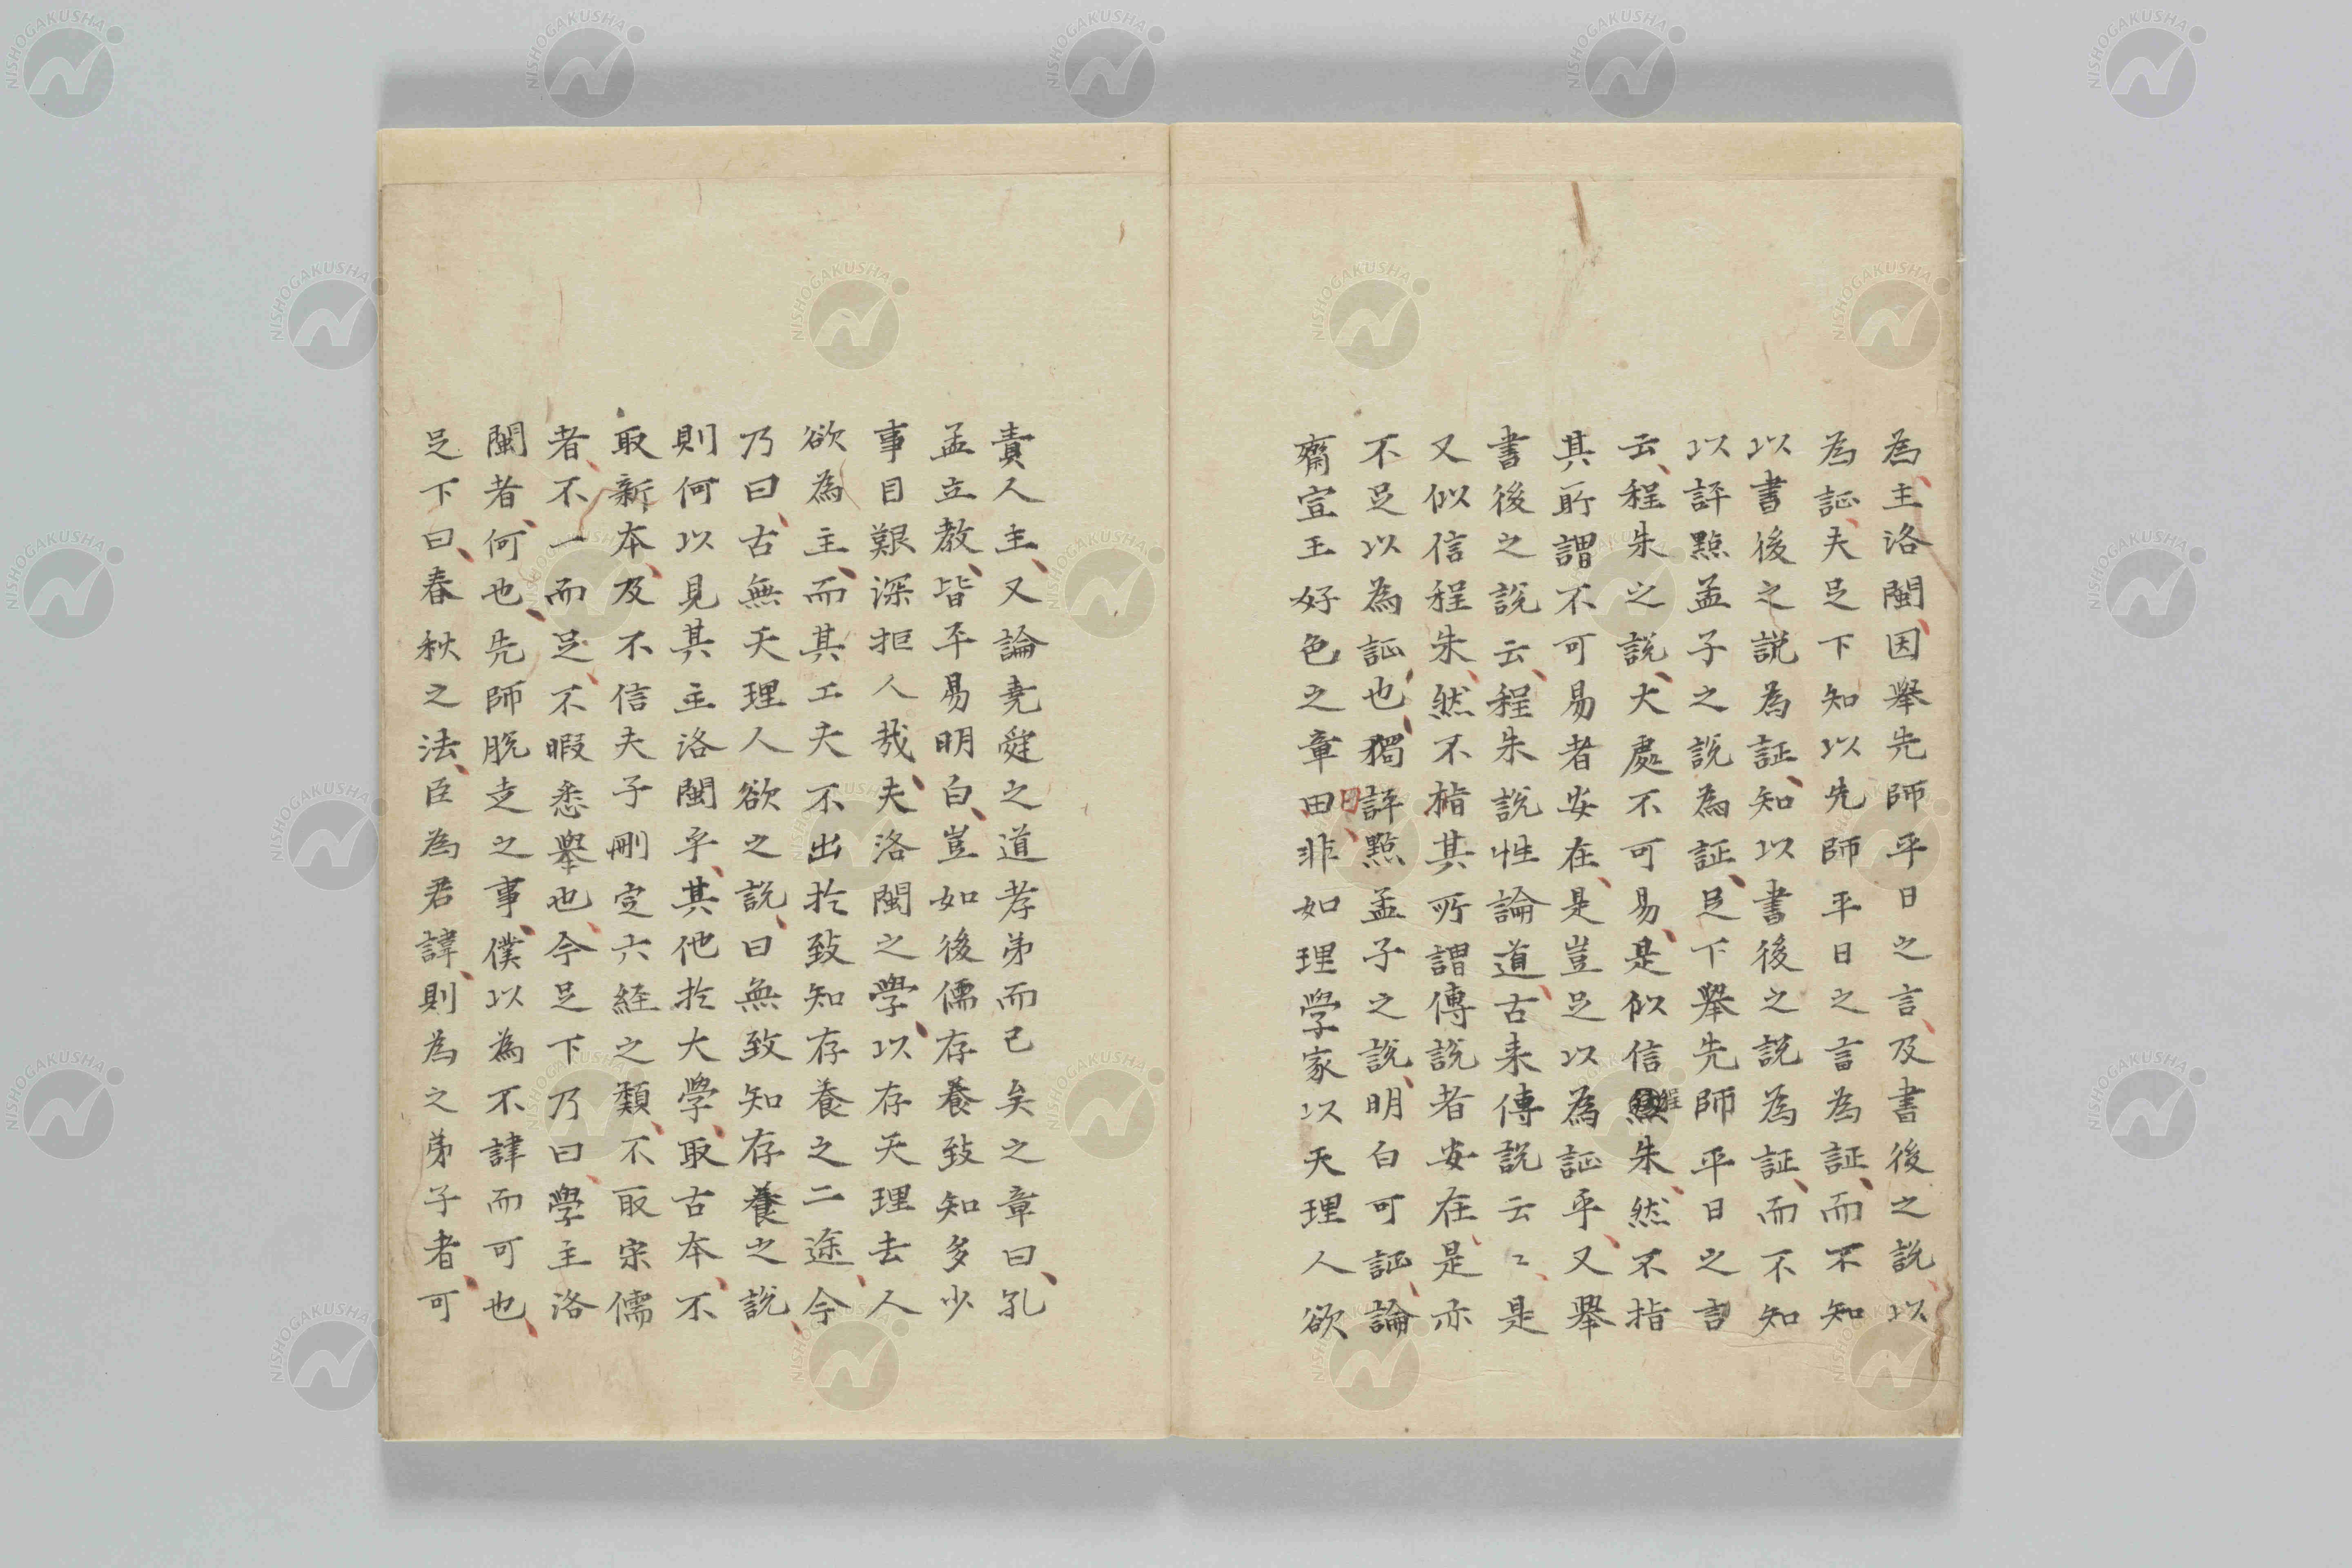 為主洛閩因擧先師平日之言及書後之説以
為証夫足下知以先師平日之言為証而不知
以書後之説為証知以書後之説為証而不知
以評點孟子之説為証足下擧先師平日之言
云程朱之説大處不可易是似信程朱然不指
其所謂不可易者安在是豈足以為証乎又擧
書後之説云程朱説性論道古来傳説云〻是
又似信程朱然不指其所謂傳説者安在是亦
不足以為証也獨評點孟子之説明白可証論
齋宣王好色之章曰非如理学家以天理人欲
責人主又論堯舜之道孝弟而已矣之章曰孔
孟立教皆平易明白豈如後儒存養致知多少
事目艱深拒人哉夫洛閩之學以存天理去人
欲為主而其工夫不出於致知存養之二途今
乃曰古無天理人欲之説曰無致知存養之説
則何以見其主洛閩乎其他於大學取古本不
取新本及不信夫子刪定六経之類不取宋儒
者不一而足不暇悉擧也今足下乃曰學主洛
閩者何也先師脱走之事僕以為不諱而可也
足下曰春秋之法臣為君諱則為之弟子者可
NISHOGAKUSHA